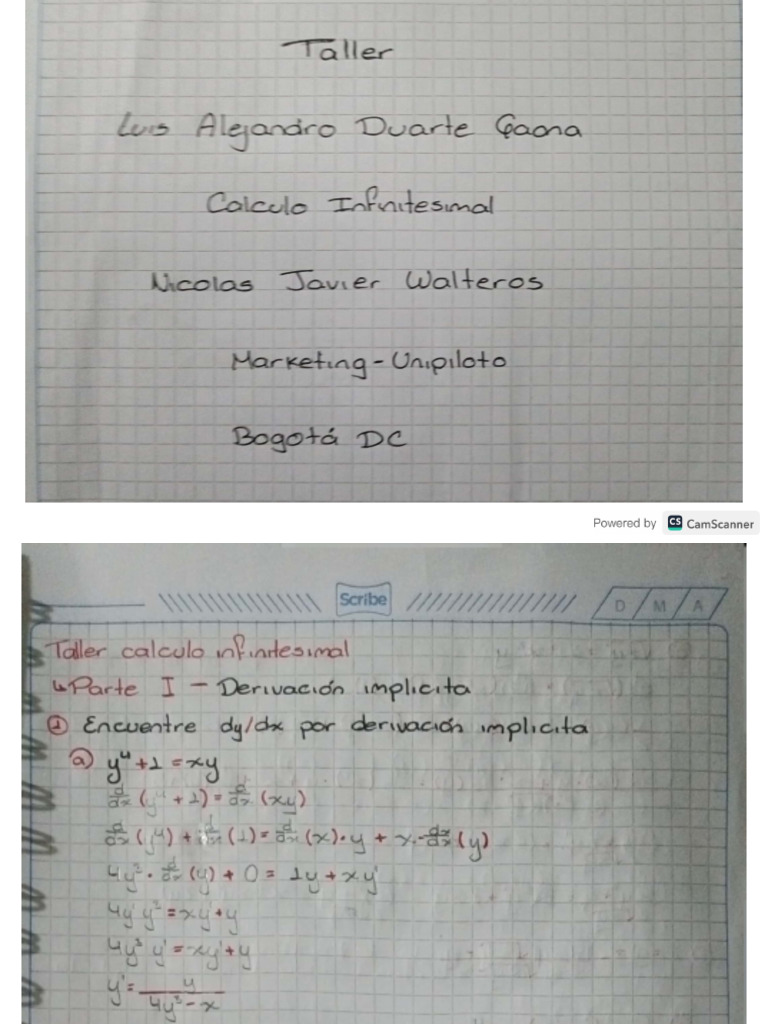 Taller
Luis Alejandro Duarte Gaona
Calculo Infinitesimal
Nicolas Javier Walteros
Marketing - Unipiloto
Bogotá DC
Powered by CS CamScanner
Scribe D / M / A
Taller calculo infinitesimal
↳ Parte I - Derivación implicita
① Encuentre dy/dx por derivación implicita
ⓐ y⁴ + 1 = xy
d/dx (y⁴ + 1) = d/dx (xy)
d/dx (y⁴) + d/dx (1) = d/dx (x) · y + x · d/dx (y)
4y³ · d/dx (y) + 0 = 1y + xy'
4y' y³ = xy' + y
4y³ y' = xy' + y
y' = y / 4y³ - x